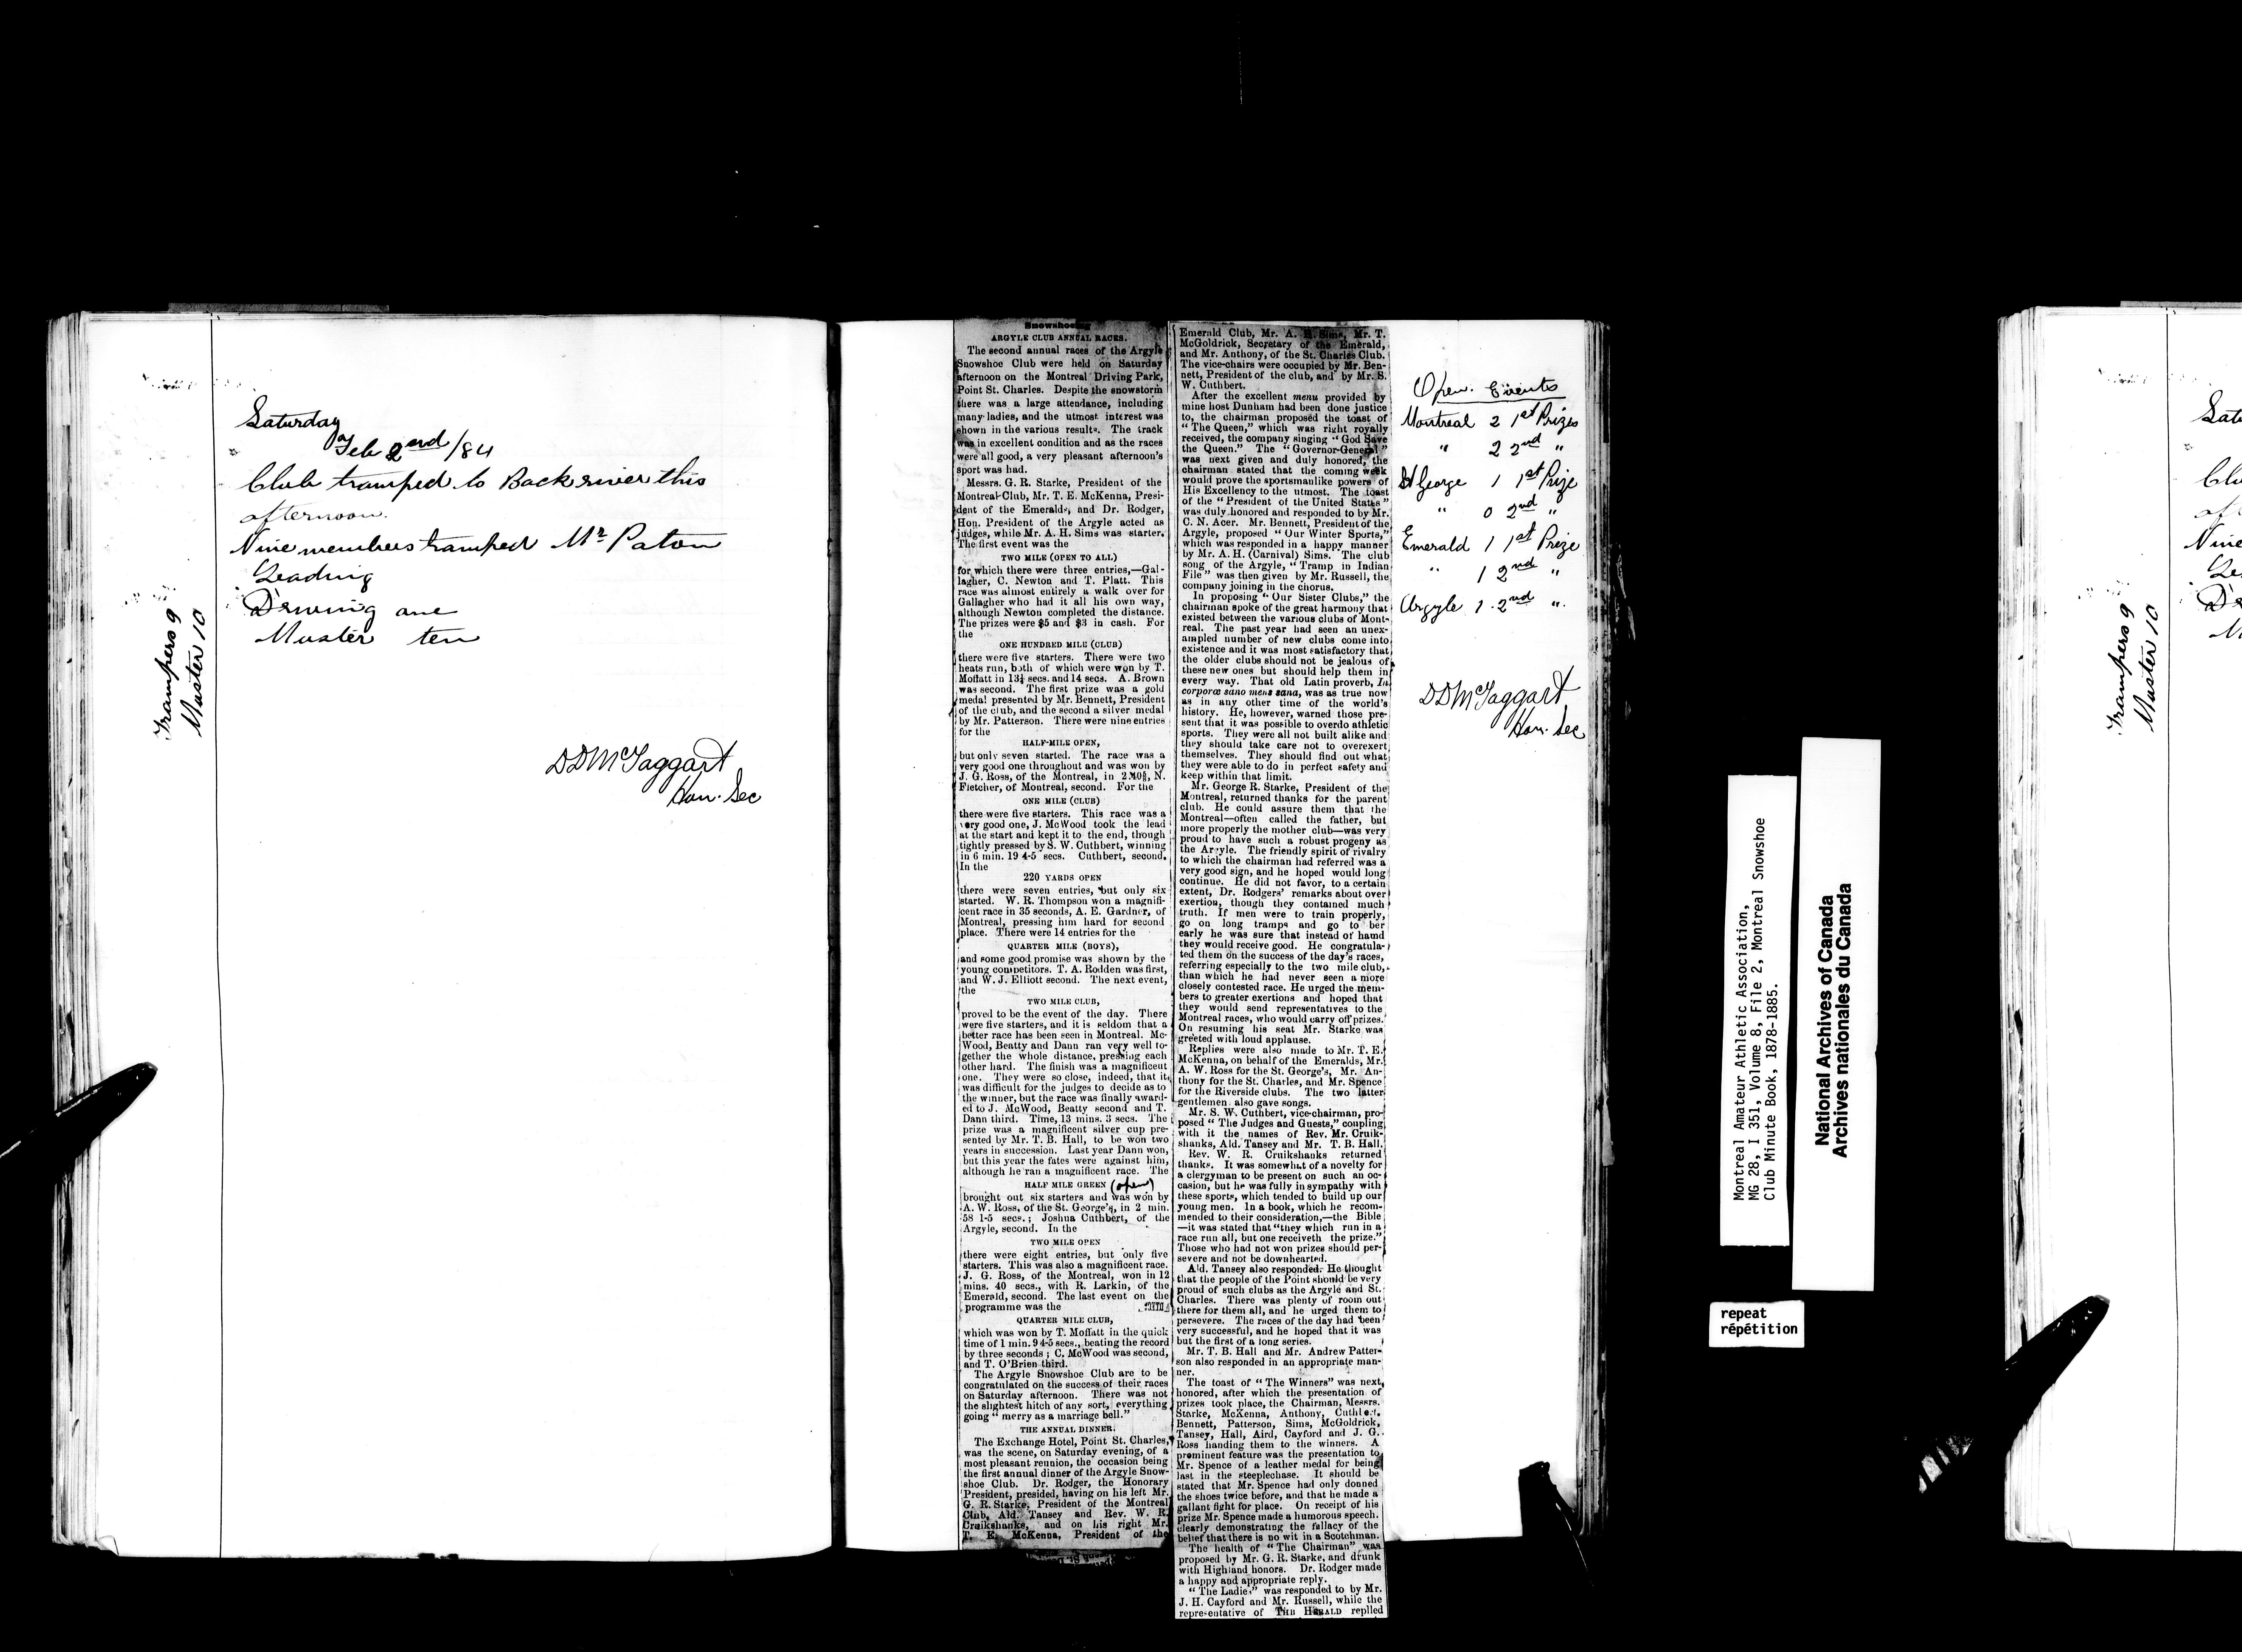 Saturday
Feb 2nd/84
Club tramped to Back river this
afternoon.
Nine members tramped Mr Paton
Leading
Driving one
Muster ten
Trampers 9
Muster 10
DDMcTaggart
Hon. Sec
Snowshoeing
ARGYLE CLUB ANNUAL RACES.
The second annual races of the Argyle
Snowshoe Club were held on Saturday
afternoon on the Montreal Driving Park,
Point St. Charles. Despite the snowstorm
there was a large attendance, including
many ladies, and the utmost interest was
shown in the various results. The track
was in excellent condition and as the races
were all good, a very pleasant afternoon's
sport was had.
Messrs. G. R. Starke, President of the
Montreal Club, Mr. T. E. McKenna, Presi-
dent of the Emeralds, and Dr. Rodger,
Hon. President of the Argyle acted as
judges, while Mr. A. H. Sims was starter.
The first event was the
TWO MILE (OPEN TO ALL)
for which there were three entries,—Gal-
lagher, C. Newton and T. Platt. This
race was almost entirely a walk over for
Gallagher who had it all his own way,
although Newton completed the distance.
The prizes were $5 and $3 in cash. For
the
ONE HUNDRED MILE (CLUB)
there were five starters. There were two
heats run, both of which were won by T.
Moffatt in 13¼ secs. and 14 secs. A. Brown
was second. The first prize was a gold
medal presented by Mr. Bennett, President
of the club, and the second a silver medal
by Mr. Patterson. There were nine entries
for the
HALF-MILE OPEN,
but only seven started. The race was a
very good one throughout and was won by
J. G. Ross, of the Montreal, in N.
Fletcher, of Montreal, second. For the
ONE MILE (CLUB)
there were five starters. This race was a
very good one, J. McWood took the lead
at the start and kept it to the end, though
tightly pressed by S. W. Cuthbert, winning
in 6 min. 19 4-5 secs. Cuthbert, second.
In the
220 YARDS OPEN
there were seven entries, but only six
started. W. R. Thompson won a magnifi-
cent race in 35 seconds, A. E. Gardner, of
Montreal, pressing him hard for second
place. There were 14 entries for the
QUARTER MILE (BOYS),
and some good promise was shown by the
young competitors. T. A. Rodden was first,
and W. J. Elliott second. The next event,
the
TWO MILE CLUB,
proved to be the event of the day. There
were five starters, and it is seldom that a
better race has been seen in Montreal. Mc-
Wood, Beatty and Dann ran very well to-
gether the whole distance, pressing each
other hard. The finish was a magnificent
one. They were so close, indeed, that it
was difficult for the judges to decide as to
the winner, but the race was finally award-
ed to J. McWood, Beatty second and T.
Dann third. Time, 13 mins. 3 secs. The
prize was a magnificent silver cup pre-
sented by Mr. T. B. Hall, to be won two
years in succession. Last year Dann won,
but this year the fates were against him,
although he ran a magnificent race. The
HALF MILE GREEN (open)
brought out six starters and was won by
A. W. Ross, of the St. George's, in 2 min.
58 1-5 secs.; Joshua Cuthbert, of the
Argyle, second. In the
TWO MILE OPEN
there were eight entries, but only five
starters. This was also a magnificent race.
J. G. Ross, of the Montreal, won in 12
mins. 40 secs., with R. Larkin, of the
Emerald, second. The last event on the
programme was the
QUARTER MILE CLUB,
which was won by T. Moffatt in the quick
time of 1 min. 9 4-5 secs., beating the record
by three seconds; C. McWood was second,
and T. O'Brien third.
The Argyle Snowshoe Club are to be
congratulated on the success of their races
on Saturday afternoon. There was not
the slightest hitch of any sort, everything
going "merry as a marriage bell."
THE ANNUAL DINNER.
The Exchange Hotel, Point St. Charles,
was the scene, on Saturday evening, of a
most pleasant reunion, the occasion being
the first annual dinner of the Argyle Snow-
shoe Club. Dr. Rodger, the Honorary
President, presided, having on his left Mr.
G. R. Starke, President of the Montreal
Club, Ald. Tansey and Rev. W. R.
Cruikshanks, and on his right Mr.
T. E. McKenna, President of the
Emerald Club, Mr. A. H. Sims, Mr. T.
McGoldrick, Secretary of the Emerald,
and Mr. Anthony, of the St. Charles Club.
The vice-chairs were occupied by Mr. Ben-
nett, President of the club, and by Mr. S.
W. Cuthbert.
After the excellent menu provided by
mine host Dunham had been done justice
to, the chairman proposed the toast of
"The Queen," which was right royally
received, the company singing "God Save
the Queen." The "Governor-General"
was next given and duly honored, the
chairman stated that the coming week
would prove the sportsmanlike powers of
His Excellency to the utmost. The toast
of the "President of the United States"
was duly honored and responded to by Mr.
C. N. Acer. Mr. Bennett, President of the
Argyle, proposed "Our Winter Sports,"
which was responded in a happy manner
by Mr. A. H. (Carnival) Sims. The club
song of the Argyle, "Tramp in Indian
File" was then given by Mr. Russell, the
company joining in the chorus.
In proposing "Our Sister Clubs," the
chairman spoke of the great harmony that
existed between the various clubs of Mont-
real. The past year had seen an unex-
ampled number of new clubs come into
existence and it was most satisfactory that
the older clubs should not be jealous of
these new ones but should help them in
every way. That old Latin proverb, In
corporœ sano mens sana, was as true now
as in any other time of the world's
history. He, however, warned those pre-
sent that it was possible to overdo athletic
sports. They were all not built alike and
they should take care not to overexert
themselves. They should find out what
they were able to do in perfect safety and
keep within that limit.
Mr. George R. Starke, President of the
Montreal, returned thanks for the parent
club. He could assure them that the
Montreal—often called the father, but
more properly the mother club—was very
proud to have such a robust progeny as
the Argyle. The friendly spirit of rivalry
to which the chairman had referred was a
very good sign, and he hoped would long
continue. He did not favor, to a certain
extent, Dr. Rodgers' remarks about over
exertion, though they contained much
truth. If men were to train properly,
go on long tramps and go to ber
early he was sure that instead of hamd
they would receive good. He congratula-
ted them on the success of the day's races,
referring especially to the two mile club,
than which he had never seen a more
closely contested race. He urged the mem-
bers to greater exertions and hoped that
they would send representatives to the
Montreal races, who would carry off prizes.
On resuming his seat Mr. Starke was
greeted with loud applause.
Replies were also made to Mr. T. E.
McKenna, on behalf of the Emeralds, Mr.
A. W. Ross for the St. George's, Mr. An-
thony for the St. Charles, and Mr. Spence
for the Riverside clubs. The two latter
gentlemen also gave songs.
Mr. S. W. Cuthbert, vice-chairman, pro-
posed "The Judges and Guests," coupling
with it the names of Rev. Mr. Cruik-
shanks, Ald. Tansey and Mr. T. B. Hall.
Rev. W. R. Cruikshanks returned
thanks. It was somewhat of a novelty for
a clergyman to be present on such an oc-
casion, but he was fully in sympathy with
these sports, which tended to build up our
young men. In a book, which he recom-
mended to their consideration,—the Bible
—it was stated that "they which run in a
race run all, but one receiveth the prize."
Those who had not won prizes should per-
severe and not be downhearted.
Ald. Tansey also responded. He thought
that the people of the Point should be very
proud of such clubs as the Argyle and St.
Charles. There was plenty of room out
there for them all, and he urged them to
persevere. The races of the day had been
very successful, and he hoped that it was
but the first of a long series.
Mr. T. B. Hall and Mr. Andrew Patter-
son also responded in an appropriate man-
ner.
The toast of "The Winners" was next
honored, after which the presentation of
prizes took place, the Chairman, Messrs.
Starke, McKenna, Anthony, Cuthbert,
Bennett, Patterson, Sims, McGoldrick,
Tansey, Hall, Aird, Cayford and J. G.
Ross handing them to the winners. A
prominent feature was the presentation to
Mr. Spence of a leather medal for being
last in the steeplechase. It should be
stated that Mr. Spence had only donned
the shoes twice before, and that he made a
gallant fight for place. On receipt of his
prize Mr. Spence made a humorous speech,
clearly demonstrating the fallacy of the
belief that there is no wit in a Scotchman.
The health of "The Chairman" was
proposed by Mr. G. R. Starke, and drunk
with Highland honors. Dr. Rodger made
a happy and appropriate reply.
"The Ladies" was responded to by Mr.
J. H. Cayford and Mr. Russell, while the
representative of THE HERALD replied
Open. Events
Montreal 2 1st Prizes
" 2 2nd "
St George 1 1st Prize
" 0 2nd "
Emerald 1 1st Prize
" 1 2nd "
Argyle 1. 2nd ".
DDMcTaggart
Hon. Sec
Montreal Amateur Athletic Association,
MG 28, I 351, Volume 8, File 2, Montreal Snowshoe
Club Minute Book, 1878-1885.
National Archives of Canada
Archives nationales du Canada
repeat
répétition
Trampers 9
Muster 10
Satu
Clu
af
Nine
Le
Dr
M